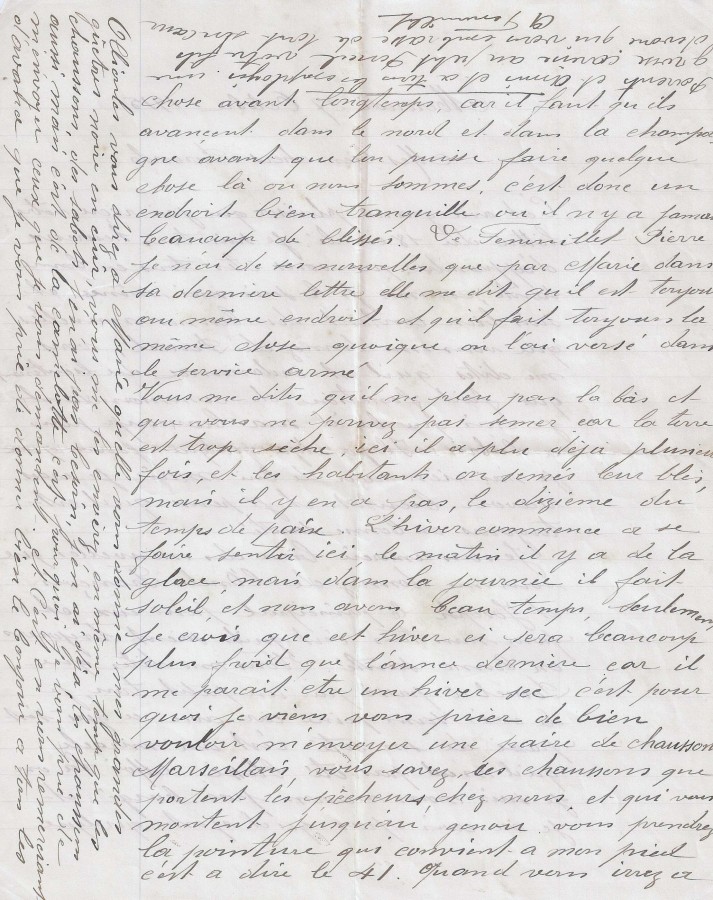 chose avant longtemps, car il faut qu'ils
avancent dans le nord et dans la champa
gne avant que lon puisse faire quelque
chose là ou nous sommes, c'est donc un
endroit bien tranquille ou il n'y a jamais
beaucoup de blessés. De Fenouillet Pierre
je n'ai de ses nouvelles que par Marie dans
sa dernière lettre elle me dit qu'il est toujou
au même endroit et qu'il fait toujours la
même chose quoique on l'ai versé dans
le service armé
Vous me dites qu'il ne pleu pas la bàs et
que vous ne pouvez pas semer car la terre
est trop sèche, ici il a plu déjà plusieu
fois, et les habitants on semés leur blés,
mais il y en a pas, le dizième du
temps de paix. L'hiver commence a se
faire sentir ici le matin il y a de la
glace, mais dans la journée il fait
soleil, et nous avons beau temps, seulemen
je crois que cet hiver ci sera beaucoup
plus froid que l'année dernière car il
me parait etre un hiver sec c'est pour
quoi je viens vous prier de bien
vouloir m'envoyer une paire de chausson
Marseillais, vous savez, ces chaussons que
portent les pêcheurs chez nous et qui vous
montent jusqu'au genou vous prendrez
la pointure qui convient a mon pied
c'est a dire le 41. Quand vous irrez a
Ollioules vous direz a Marie qu'elle vous donne mes grandes
guêtres noire en cuir, vous me les enverrez en même temps que les
chaussons, des sabots j'en ai pas besoin j'en ai déja les chaussons
aussi mais c'est de la camelotte c'est pourquoi je vous prie de
m'envoyer ceux que je vous demande. et Cecy en vous remerciant
d'avance que je vous prie de donner bien le bonjour a tous les
parents et amis et a tous les
grosse caresse au petit et votre fils
devoué qui vous embrasse de tout son cœur